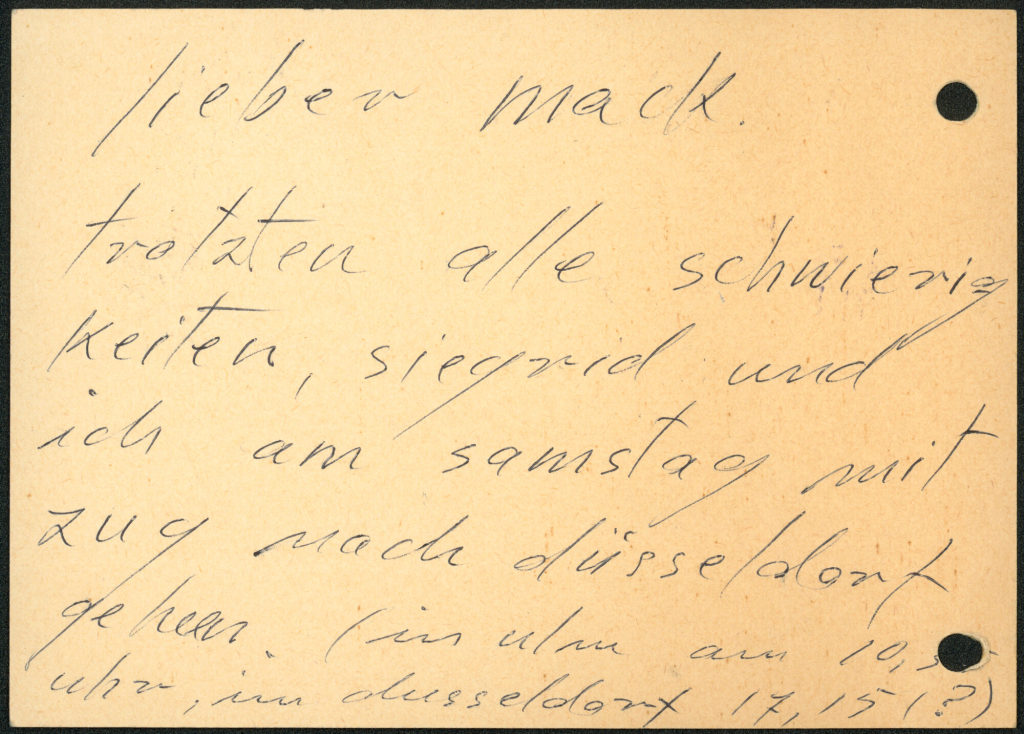 lieber mack.
trotzten alle schwierig
keiten, siegrid und
ich am samstag mit
zug nach düsseldorf
gehen. (in ulm am
uhr, in dusseldorf 17,15 (?)